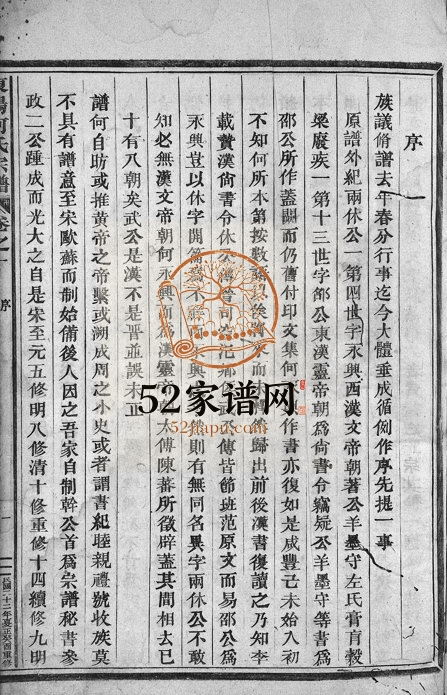 序
族議脩譜去年春分行事迄今大體垂成循例作序先提一事
原譜外紀兩休公一第四世字永興西漢文帝朝著公羊墨守左氏膏肓穀
梁廢疾一第十三世字邵公東漢靈帝朝爲尙書令竊疑公羊墨守等書爲
邵公所作蓋闕而仍舊付印文集何 作書亦復如是咸豐己未始入初
不知何所本第按數 未 歸出前後漢書復讀之乃知李
載贊漢尙書令休公 晉司 氾鄉 公傳皆節班范原文而易邵公爲
永興豈以休字開 興 然則有無同名異字兩休公不敢
知必無漢文帝朝何永興而爲漢靈 太傅陳蕃所徵辟蓋其間相去已
十有八朝矣武公是漢不是晋並誤未正
譜何自昉或推黄帝之帝繫或溯成周之小史或者謂書紀睦親禮號收族莫
不具有譜意至宋歐蘇而制始備後人因之吾家自制幹公首爲宗譜秘書參
政二公踵成而光大之自是宋至元五修明八修清十修重修十四續修九明
東陽何氏宗譜 卷之一 序 一
民國二十二年歲在癸酉重修
52家谱网
52jiapu.com